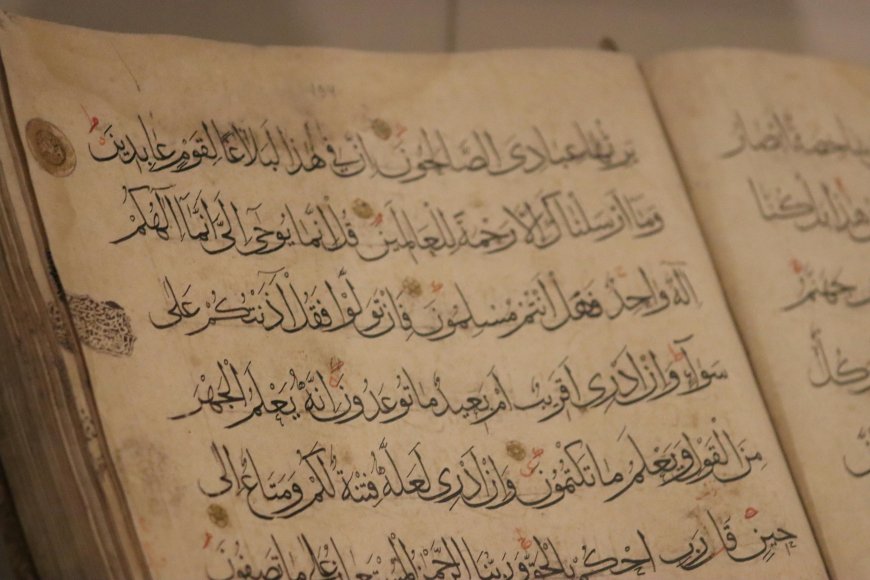 شاخصة ابصار
هذا بل كنا
جهنم
وكل
يرثها عبادي الصالحون ان في هذا لبلاغا لقوم عابدين
وما ارسلناك الا رحمة للعالمين قل انما يوحى الي انما الهكم
اله واحد فهل انتم مسلمون فان تولوا فقل آذنتكم على
سواء وان ادري اقريب ام بعيد ما توعدون انه يعلم الجهر
من القول ويعلم ما تكتمون وان ادري لعله فتنة لكم ومتاع الى
حين قال رب احكم بالحق وربنا الرحمن المستعان على ما تصفون